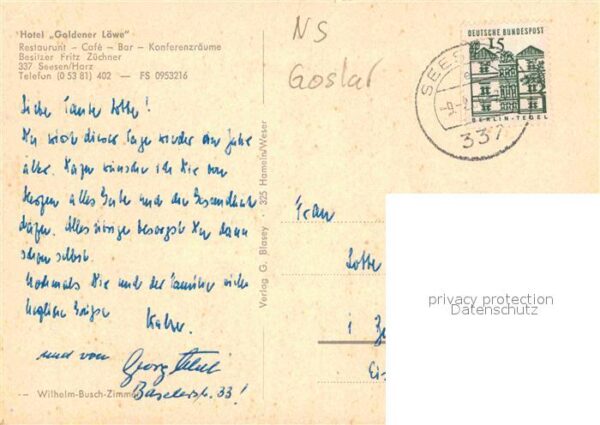 Hotel „Goldener Löwe"
Restaurant – Café – Bar – Konferenzräume
Besitzer Fritz Züchner
337 Seesen/Harz
Telefon (0 53 81) 402 — FS 0953216
Liebe Tante Lotte!
Du wirst dieser Tage wieder ein Jahr
älter. Dazu wünsche ich Dir von
Herzen alles Gute und die Gesundheit
alles übrige besorgst Du dann
schon selbst.
Nochmals Dir und der Familie viele
herzliche Grüße
und von Georg
33!
— Wilhelm-Busch-Zimmer
Verlag G. Blasey · 325 Hameln/Weser
NS
Goslar
DEUTSCHE BUNDESPOST
15
BERLIN-TEGEL
SEES
337
Frau
Lotte
i
privacy protection
Datenschutz